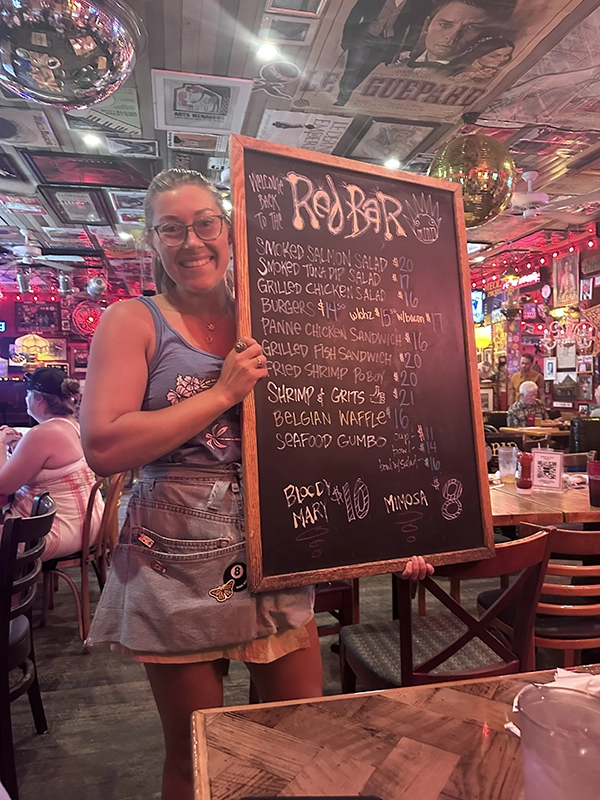 LE GUEPARD
WELCOME BACK TO THE
RED BAR
SMOKED SALMON SALAD $20
SMOKED TUNA DIP SALAD $17
GRILLED CHICKEN SALAD $16
BURGERS $14.50 w/chz $15.50 w/bacon $17
PANNE CHICKEN SANDWICH $16
GRILLED FISH SANDWICH $20
FRIED SHRIMP PO BOY $20
SHRIMP & GRITS $21
BELGIAN WAFFLE $16
SEAFOOD GUMBO cup - $11
bowl - $14
bowl w/salad - $16
BLOODY MARY $10
MIMOSA $8
8